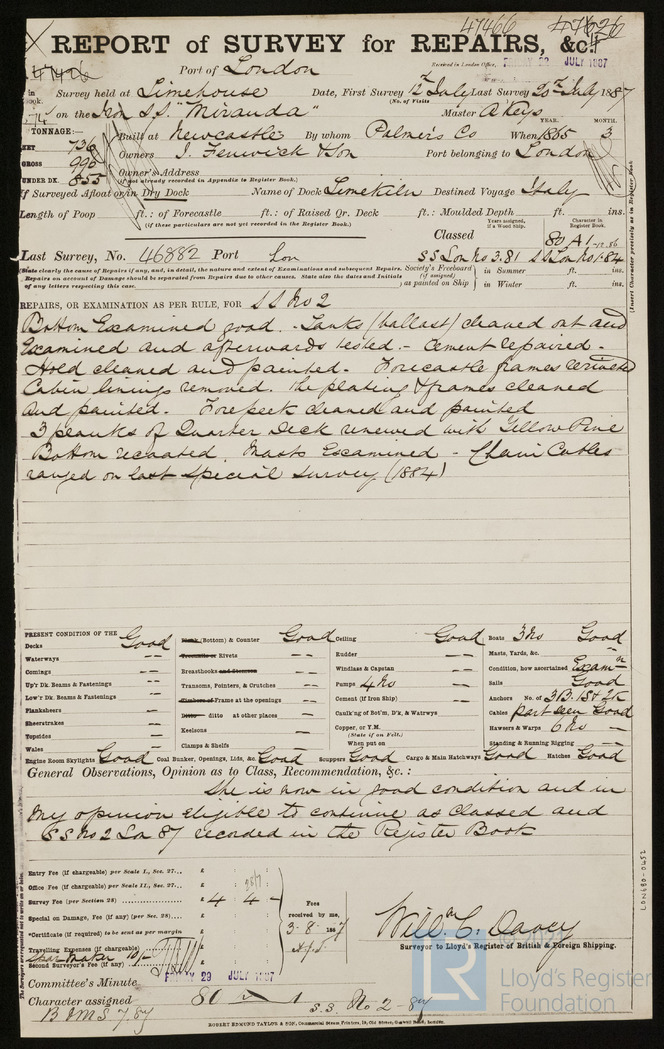 47466
REPORT of SURVEY for REPAIRS, &c.
Port of London
Received in London Office, FRIDAY 22 JULY 1887
Survey held at Limehouse Date, First Survey 12th July Last Survey 20th July 1887
(No. of Visits
on the Iron S.S. "Miranda" Master A Keys
TONNAGE:
NET 736
GROSS 996
UNDER DK. 855
Built at Newcastle By whom Palmers Co When 1865 3
YEAR. MONTH.
Owners J. Fenwick & Son Port belonging to London
Owner's Address
(if not already recorded in Appendix to Register Book.)
If Surveyed Afloat or in Dry Dock Name of Dock Limekiln Destined Voyage Italy
Length of Poop ft.: of Forecastle ft.: of Raised Qr. Deck ft.: Moulded Depth ft. ins.
(if these particulars are not yet recorded in the Register Book.)
Years assigned, if a Wood Ship.
Character in Register Book.
Classed 80 A 1
Last Survey, No. 46882 Port Lon SS Lon No 3.81 SS Lon No 1.84
(State clearly the cause of Repairs if any, and, in detail, the nature and extent of Examinations and subsequent Repairs.
Repairs on account of Damage should be separated from Repairs due to other causes. State also the dates and Initials
of any letters respecting this case.
Society's Freeboard (if assigned) as painted on Ship
in Summer ft. ins.
in Winter ft. ins.
(Insert Character precisely as in Register Book.
REPAIRS, OR EXAMINATION AS PER RULE, FOR SS No 2
Bottom Examined good. Tanks (ballast) cleaned out and
Examined and afterwards tested. - Cement repaired. -
Hold cleaned and painted. - Forecastle frames
Cabin linings removed. The plating & frames cleaned
and painted. - Forepeek cleaned and painted
3 planks of Quarter Deck renewed with Yellow Pine
Bottom recoated. Masts Examined - Chain Cables
ranged on last special Survey (1884)
PRESENT CONDITION OF THE
Decks Good
Waterways -
Comings -
Up'r Dk. Beams & Fastenings -
Low'r Dk. Beams & Fastenings -
Planksheers -
Sheerstrakes -
Topsides -
Wales -
Engine Room Skylights Good
Plank (Bottom) & Counter Good
Treenails or Rivets -
Breasthooks and Stemson -
Transoms, Pointers, & Crutches -
Timbers or Frame at the openings -
Ditto ditto at other places -
Keelsons -
Clamps & Shelfs -
Coal Bunker, Openings, Lids, &c. Good
Ceiling Good
Rudder -
Windlass & Capstan -
Pumps 4 No -
Cement (If Iron Ship) -
Caulk'ng of Bot'm, D'k, & Watrwys
Copper, or Y.M.
(State if on Felt.)
When put on
Scuppers Good Cargo & Main Hatchways Good
Boats 3 No Good
Masts, Yards, &c. -
Condition, how ascertained Exam'n
Sails Good
Anchors No. of 3B. 1S & 2K
Cables part seen Good
Hawsers & Warps 6 No -
Standing & Running Rigging -
Hatches Good
General Observations, Opinion as to Class, Recommendation, &c.:
She is now in good condition and in
my opinion eligible to continue as Classed and
SS No 2 Lon 87 recorded in the Register Book
Entry Fee (if chargeable) per Scale I., Sec. 27... £
Office Fee (if chargeable) per Scale II., Sec. 27... £
Survey Fee (per Section 28) £ 4 4 -
Special on Damage, Fee (if any) (per Sec. 28) £
*Certificate (if required) to be sent as per margin £
Travelling Expenses (if chargeable) £
Second Surveyor's Fee (if any) £
28/7
Fees received by me, 3.8.1887
Will'm C. Davey
Surveyor to Lloyd's Register of British & Foreign Shipping.
Committee's Minute FRIDAY 29 JULY 1887
Character assigned 80 A 1 S.S. No 2-87
B & MS 7.87
ROBERT EDMUND TAYLOR & SON, Commercial Steam Printers, 19, Old Street, Goswell Road, London.
LON680-0452
LR
Lloyd's Register
Foundation